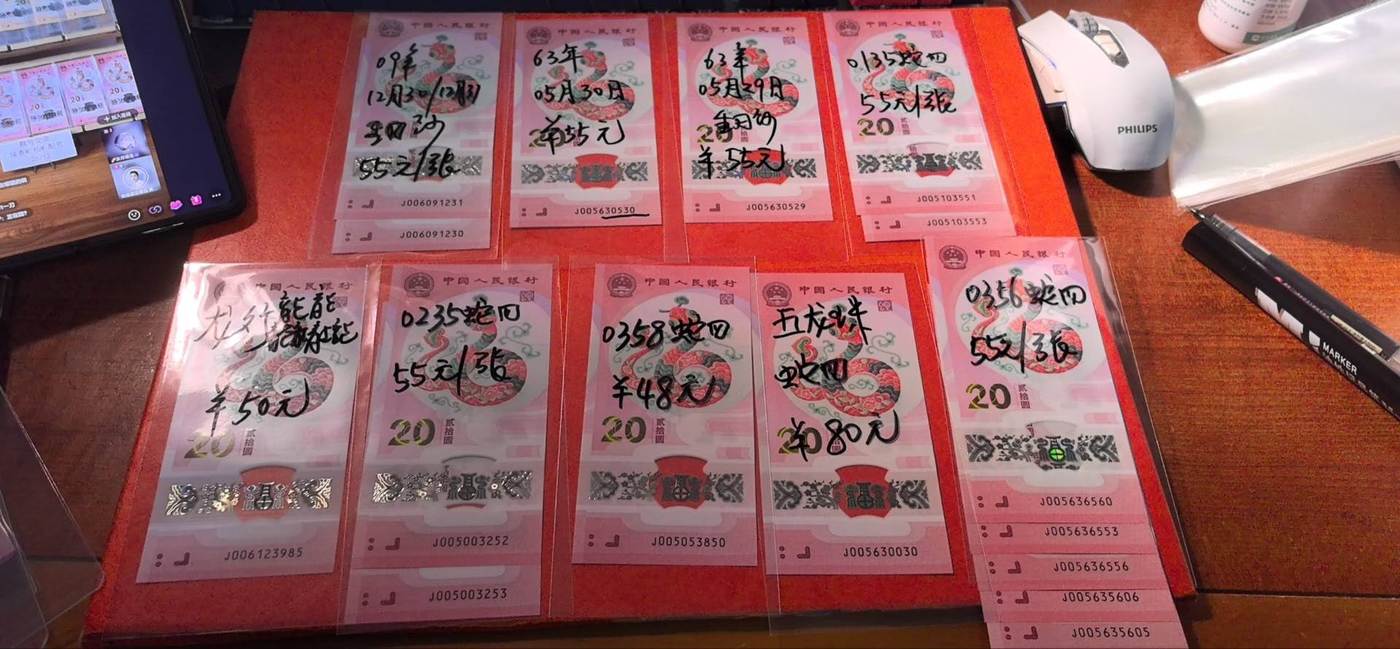 中国人民银行
09年
12月30/12月31
55元/张
J006091231
J006091230
中国人民银行
63年
05月30日
¥55元
J005630530
中国人民银行
63年
05月29日
¥55元
J005630529
中国人民银行
0135蛇四
55元/张
20
J005103551
J005103553
PHILIPS
中国人民银行
¥50元
20
J006123985
中国人民银行
0235蛇四
55元/张
20
贰拾圆
J005003252
J005003253
中国人民银行
0358蛇四
¥48元
20
贰拾圆
J005053850
中国人民银行
五龙珠
蛇四
¥80元
20
贰拾圆
J005630030
中国人民银行
0356蛇四
55元/张
20
贰拾圆
J005636560
J005636553
J005636556
J005635606
J005635605
MARKER